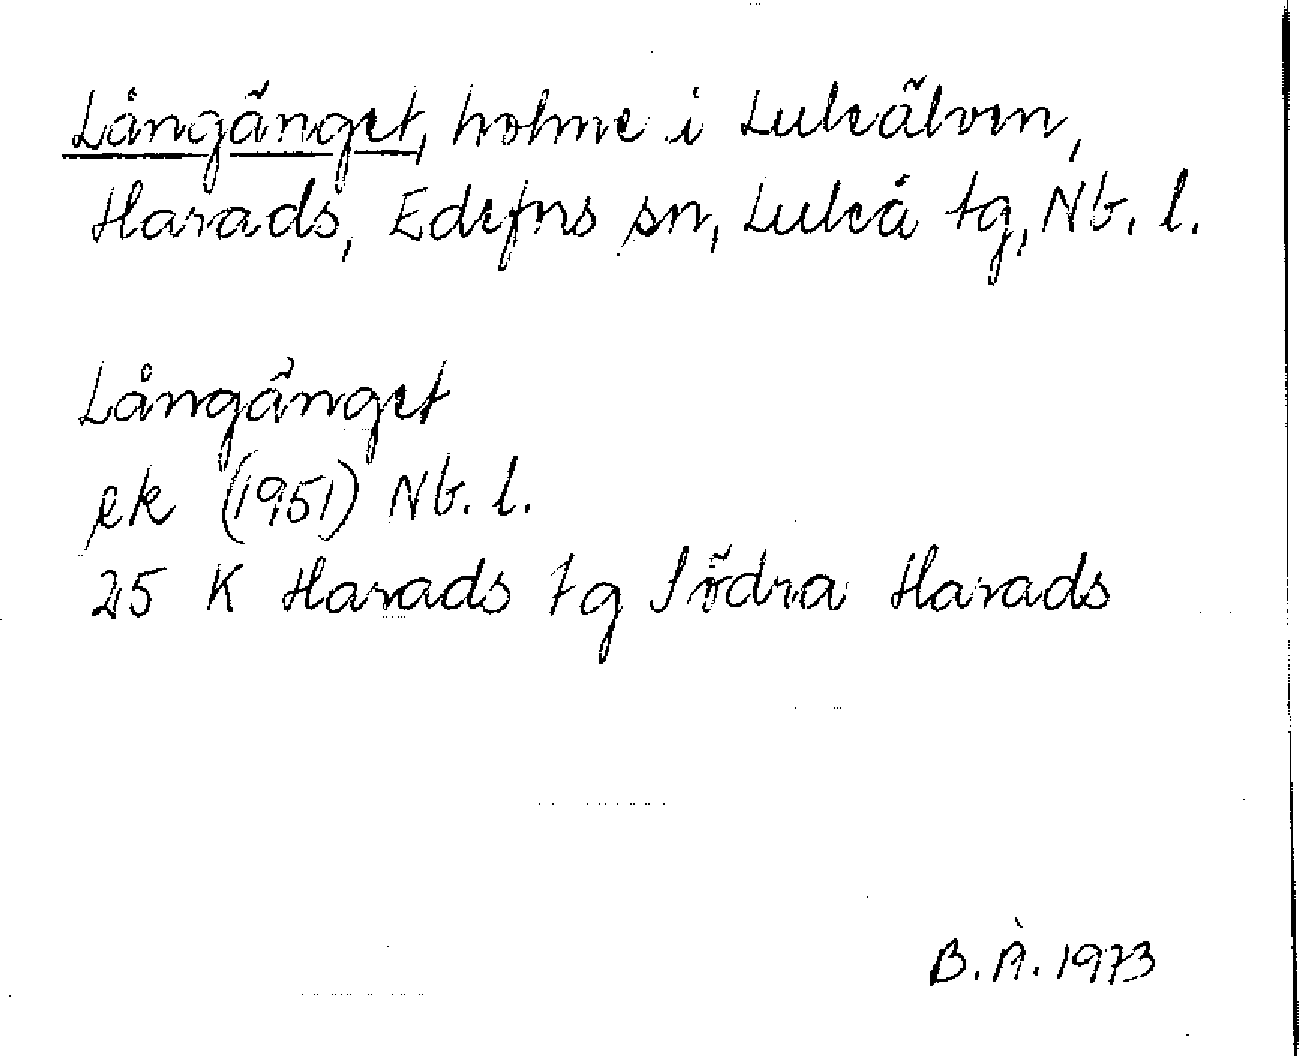 Långänget, holme i Luleälven,
Harads, Edefors sn, Luleå tg, Nb. l.
Långänget
ek (1951) Nb. l.
25 K Harads tg Södra Harads
B. Å. 1973